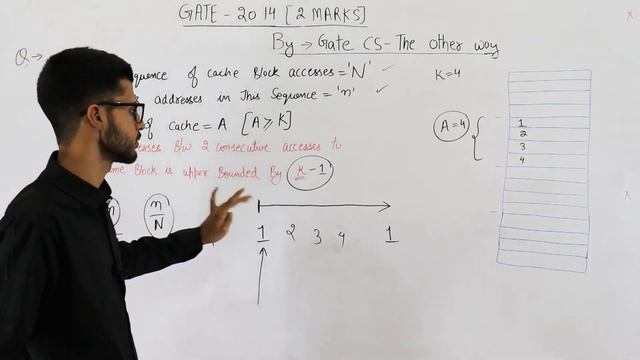 GATE - 2014 [2 MARKS]
By → Gate CS - The other way
Q →
quence of cache Block accesses = 'N' ✓
addresses in This Sequence = 'n' ✓
K=4
of cache = A [A ≥ K]
A = 4
1
2
3
4
esses B/w 2 consecutive accesses to
me Block is upper Bounded By K - 1
n
n/N
1 2 3 4 1
x
x